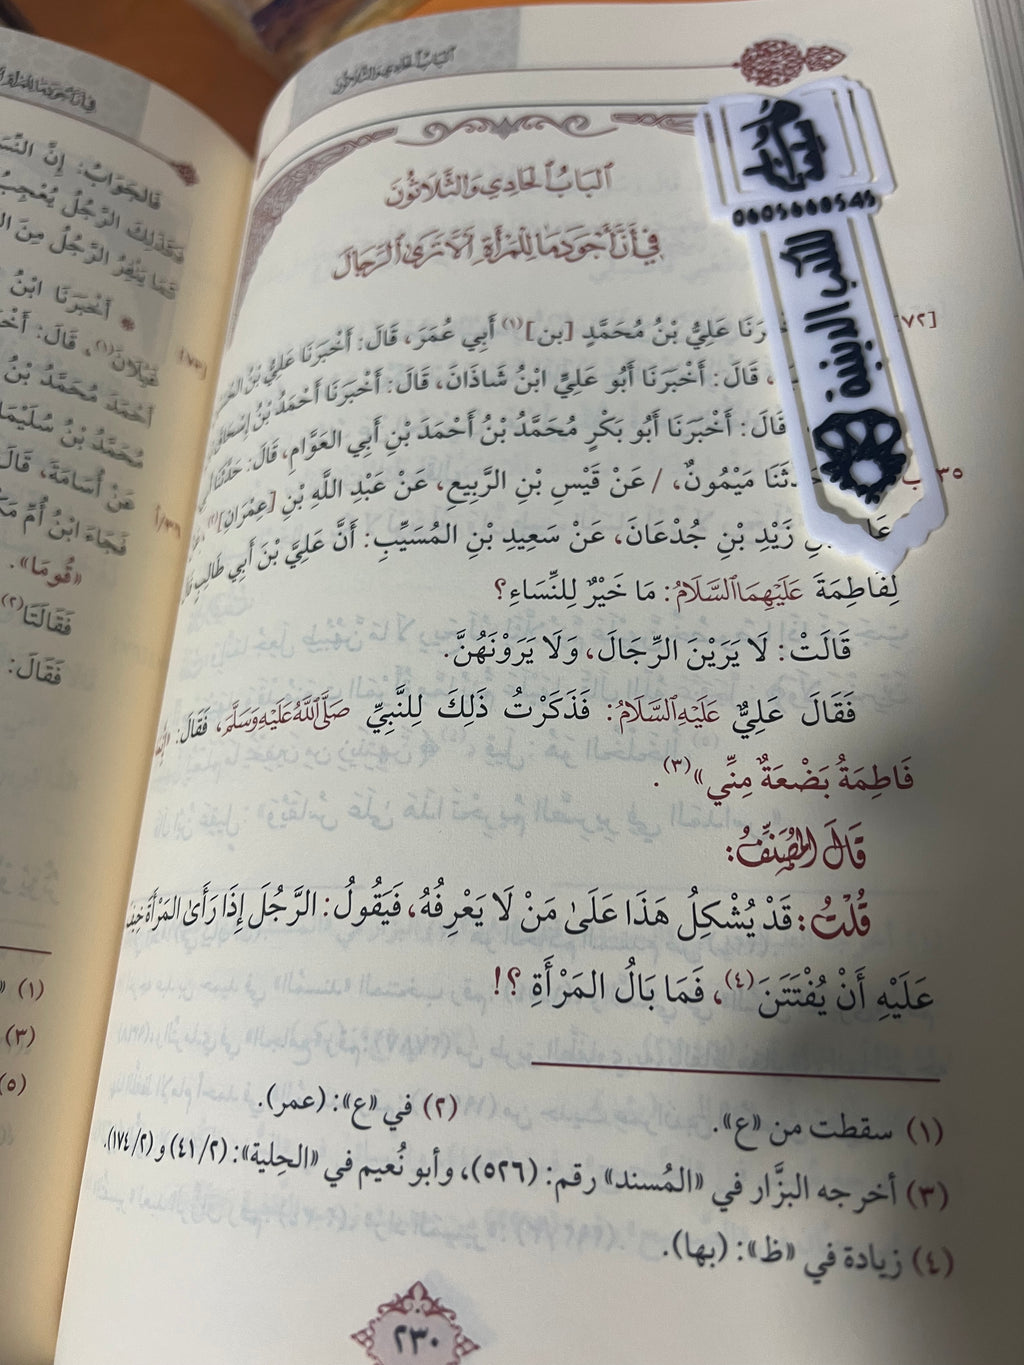 البَابُ الحَادِي وَالثَّلَاثُونَ
البَابُ الحَادِي وَالثَّلَاثُونَ
فِي أَنَّ أَجْوَدَ مَا لِلْمَرْأَةِ أَلَّا تَرَى الرِّجَالَ
[٧٢] عَلِيُّ بْنُ مُحَمَّدٍ [بن](١) أَبِي عُمَرَ، قَالَ: أَخْبَرَنَا عَلِيُّ بْنُ
قَالَ: أَخْبَرَنَا أَبُو عَلِيٍّ ابْنُ شَاذَانَ، قَالَ: أَخْبَرَنَا أَحْمَدُ بْنُ إِسْحَاقَ
قَالَ: أَخْبَرَنَا أَبُو بَكْرٍ مُحَمَّدُ بْنُ أَحْمَدَ بْنِ أَبِي العَوَّامِ، قَالَ: حَدَّثَنَا
٣٥ ب مَيْمُونٌ، / عَنْ قَيْسِ بْنِ الرَّبِيعِ، عَنْ عَبْدِ اللَّهِ بْنِ [عِمْرَانَ](٢)،
زَيْدِ بْنِ جُدْعَانَ، عَنْ سَعِيدِ بْنِ المُسَيِّبِ: أَنَّ عَلِيَّ بْنَ أَبِي طَالِبٍ
لِفَاطِمَةَ عَلَيْهِمَا السَّلَامُ: مَا خَيْرٌ لِلنِّسَاءِ؟
قَالَتْ: لَا يَرَيْنَ الرِّجَالَ، وَلَا يَرَوْنَهُنَّ.
فَقَالَ عَلِيٌّ عَلَيْهِ السَّلَامُ: فَذَكَرْتُ ذَلِكَ لِلنَّبِيِّ صَلَّى اللَّهُ عَلَيْهِ وَسَلَّمَ، فَقَالَ:
فَاطِمَةُ بَضْعَةٌ مِنِّي»(٣).
قَالَ المُصَنِّفُ:
قُلْتُ: قَدْ يُشْكِلُ هَذَا عَلَىٰ مَنْ لَا يَعْرِفُهُ، فَيَقُولُ: الرَّجُلَ إِذَا رَأَىٰ المَرْأَةَ
عَلَيْهِ أَنْ يُفْتَتَنَ(٤)، فَمَا بَالُ المَرْأَةِ ؟!
(١) سقطت من «ع». (٢) في «ع»: (عمر).
(٣) أخرجه البزَّار في «المُسند» رقم: (٥٢٦)، وأبو نُعيم في «الحِلية»: (٤١/٢) و (١٧٤/٢).
(٤) زيادة في «ظ»: (بها).
٢٣٠
0605660545
للكتب الدينية
فَالجَوَابُ: إِنَّ
الرَّجُلُ يُعْجِبُ
أَخْبَرَنَا ابْنُ
قَالَ:
مُحَمَّدُ بْنُ
مُحَمَّدُ بْنُ
عَنْ أُسَامَةَ، قَالَ
فَجَاءَ ابْنُ أُمِّ
«قُومَا».
فَقَالَتَا(٢)
فَقَالَ:
(١)
(٣)
(٥)